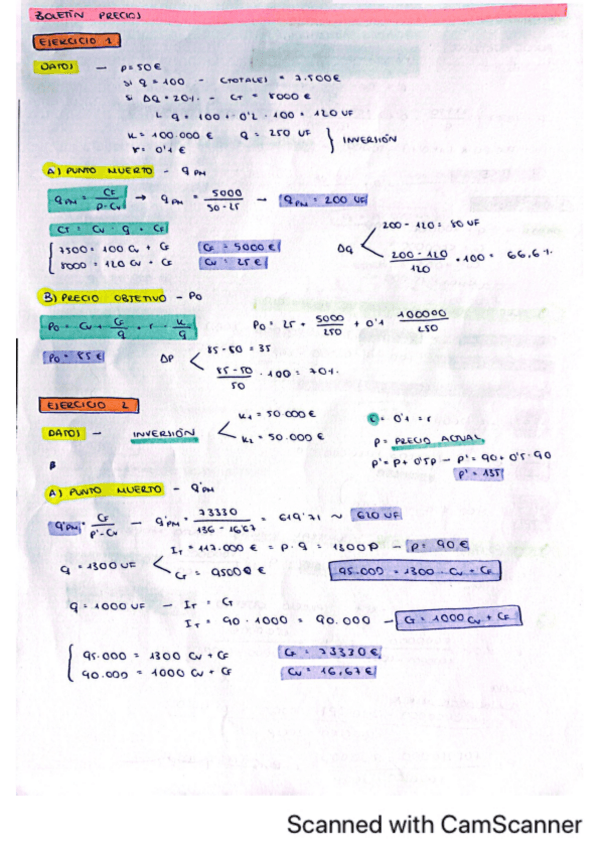 BOLETÍN PRECIOS
EJERCICIO 1
DATOS — p = 50 €
si q = 100 - CTOTALES = 7.500 €
si Δq = 20% - CT = 8000 €
↳ q = 100 + 0'2 · 100 = 120 UF
K = 100.000 € q = 250 UF } INVERSIÓN
r = 0'1 €
A) PUNTO MUERTO - qPM
qPM = CF / P - Cu → qPM = 5000 / 50 - 25 — qPM = 200 UF
CT = Cu · q + CF
7500 = 100 Cu + CF CF = 5000 €
8000 = 120 Cu + CF Cu = 25 €
Δq 200 - 120 = 80 UF
200 - 120 / 120 · 100 = 66,6 %
B) PRECIO OBJETIVO - Po
Po = Cu + CF / q + r · K / q Po = 25 + 5000 / 250 + 0'1 100000 / 250
Po = 85 € ΔP 85 - 50 = 35
85 - 50 / 50 · 100 = 70 %
EJERCICIO 2
DATOS — INVERSIÓN K1 = 50.000 €
K2 = 50.000 €
i = 0'1 = r
p = PRECIO ACTUAL
p' = p + 0'5p — p' = 90 + 0'5 · 90
p' = 135
B
A) PUNTO MUERTO - q'PM
q'PM = CF / p' - Cu — q'PM = 73330 / 136 - 16'67 = 619'71 ~ 620 UF
q = 1300 UF IT = 117.000 € = p · q = 1300 p — p = 90 €
CT = 95000 € 95.000 = 1300 · Cu + CF
q = 1000 UF — IT = CT
IT = 90 · 1000 = 90.000 — CT = 1000 Cu + CF
95.000 = 1300 Cu + CF CF = 73330 €
90.000 = 1000 Cu + CF Cu = 16,67 €
Scanned with CamScanner